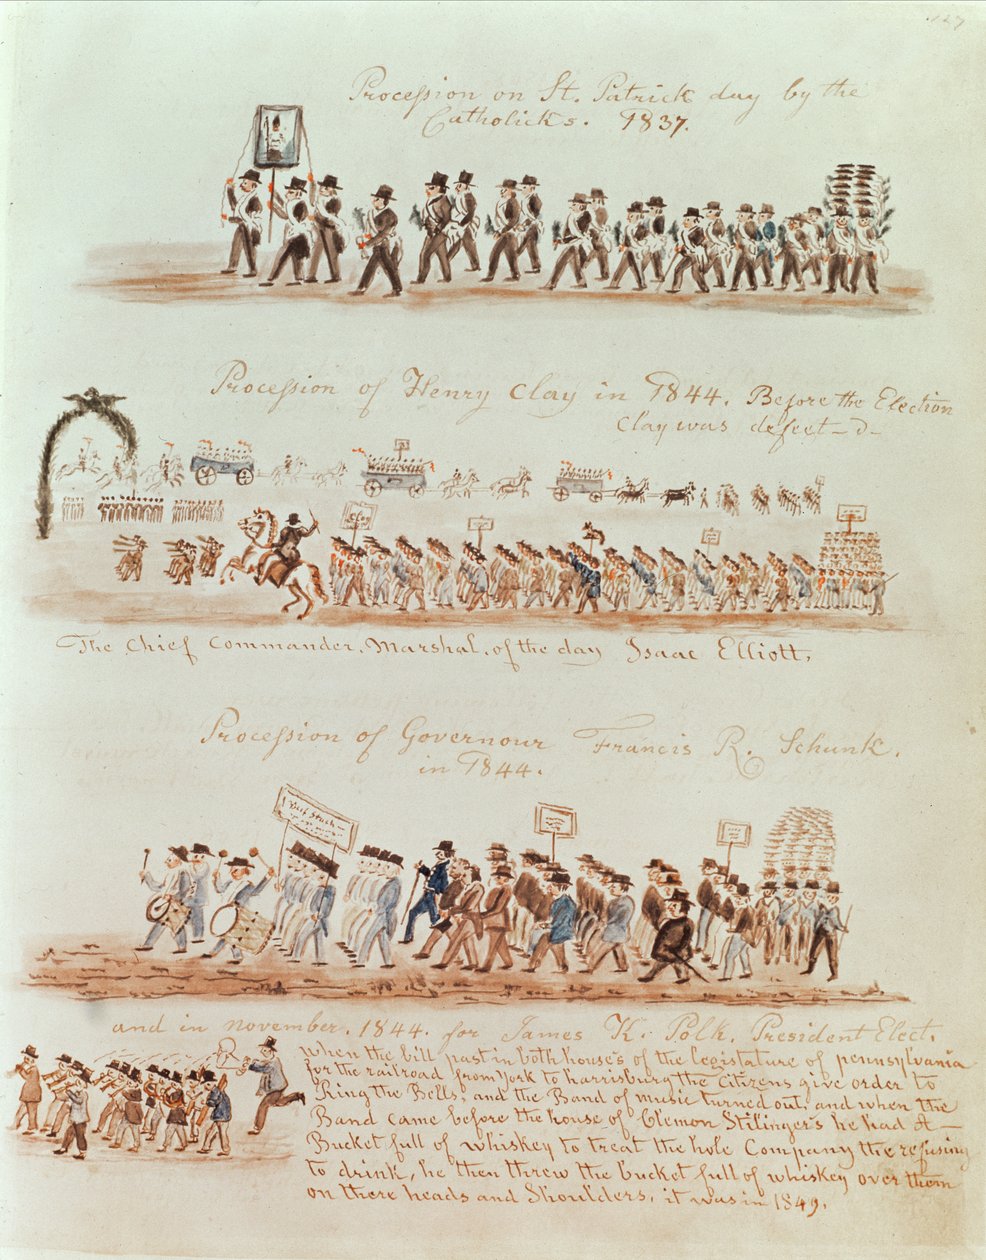 127
Procession on St. Patrick day by the
Catholicks. 1837.
Procession of Henry Clay in 1844. Before the Election
Clay was defeet_d_
The Chief Commander, Marshal, of the day Isaac Elliott,
Procession of Governour Francis R. Schunk.
in 1844.
and in november. 1844. for James K. Polk, President Elect,
when the bill past in both house's of the legistature of pennsylvania
for the railroad from York to harrisburg the Citizens give order to
Ring the Bells, and the Band of music turned out, and when the
Band came before the house of Clemon Stilinger's he had A
Bucket full of whiskey to treat the hole Company the refusing
to drink, he then threw the bucket full of whiskey over them
on there heads and Shoulders, it was in 1849.